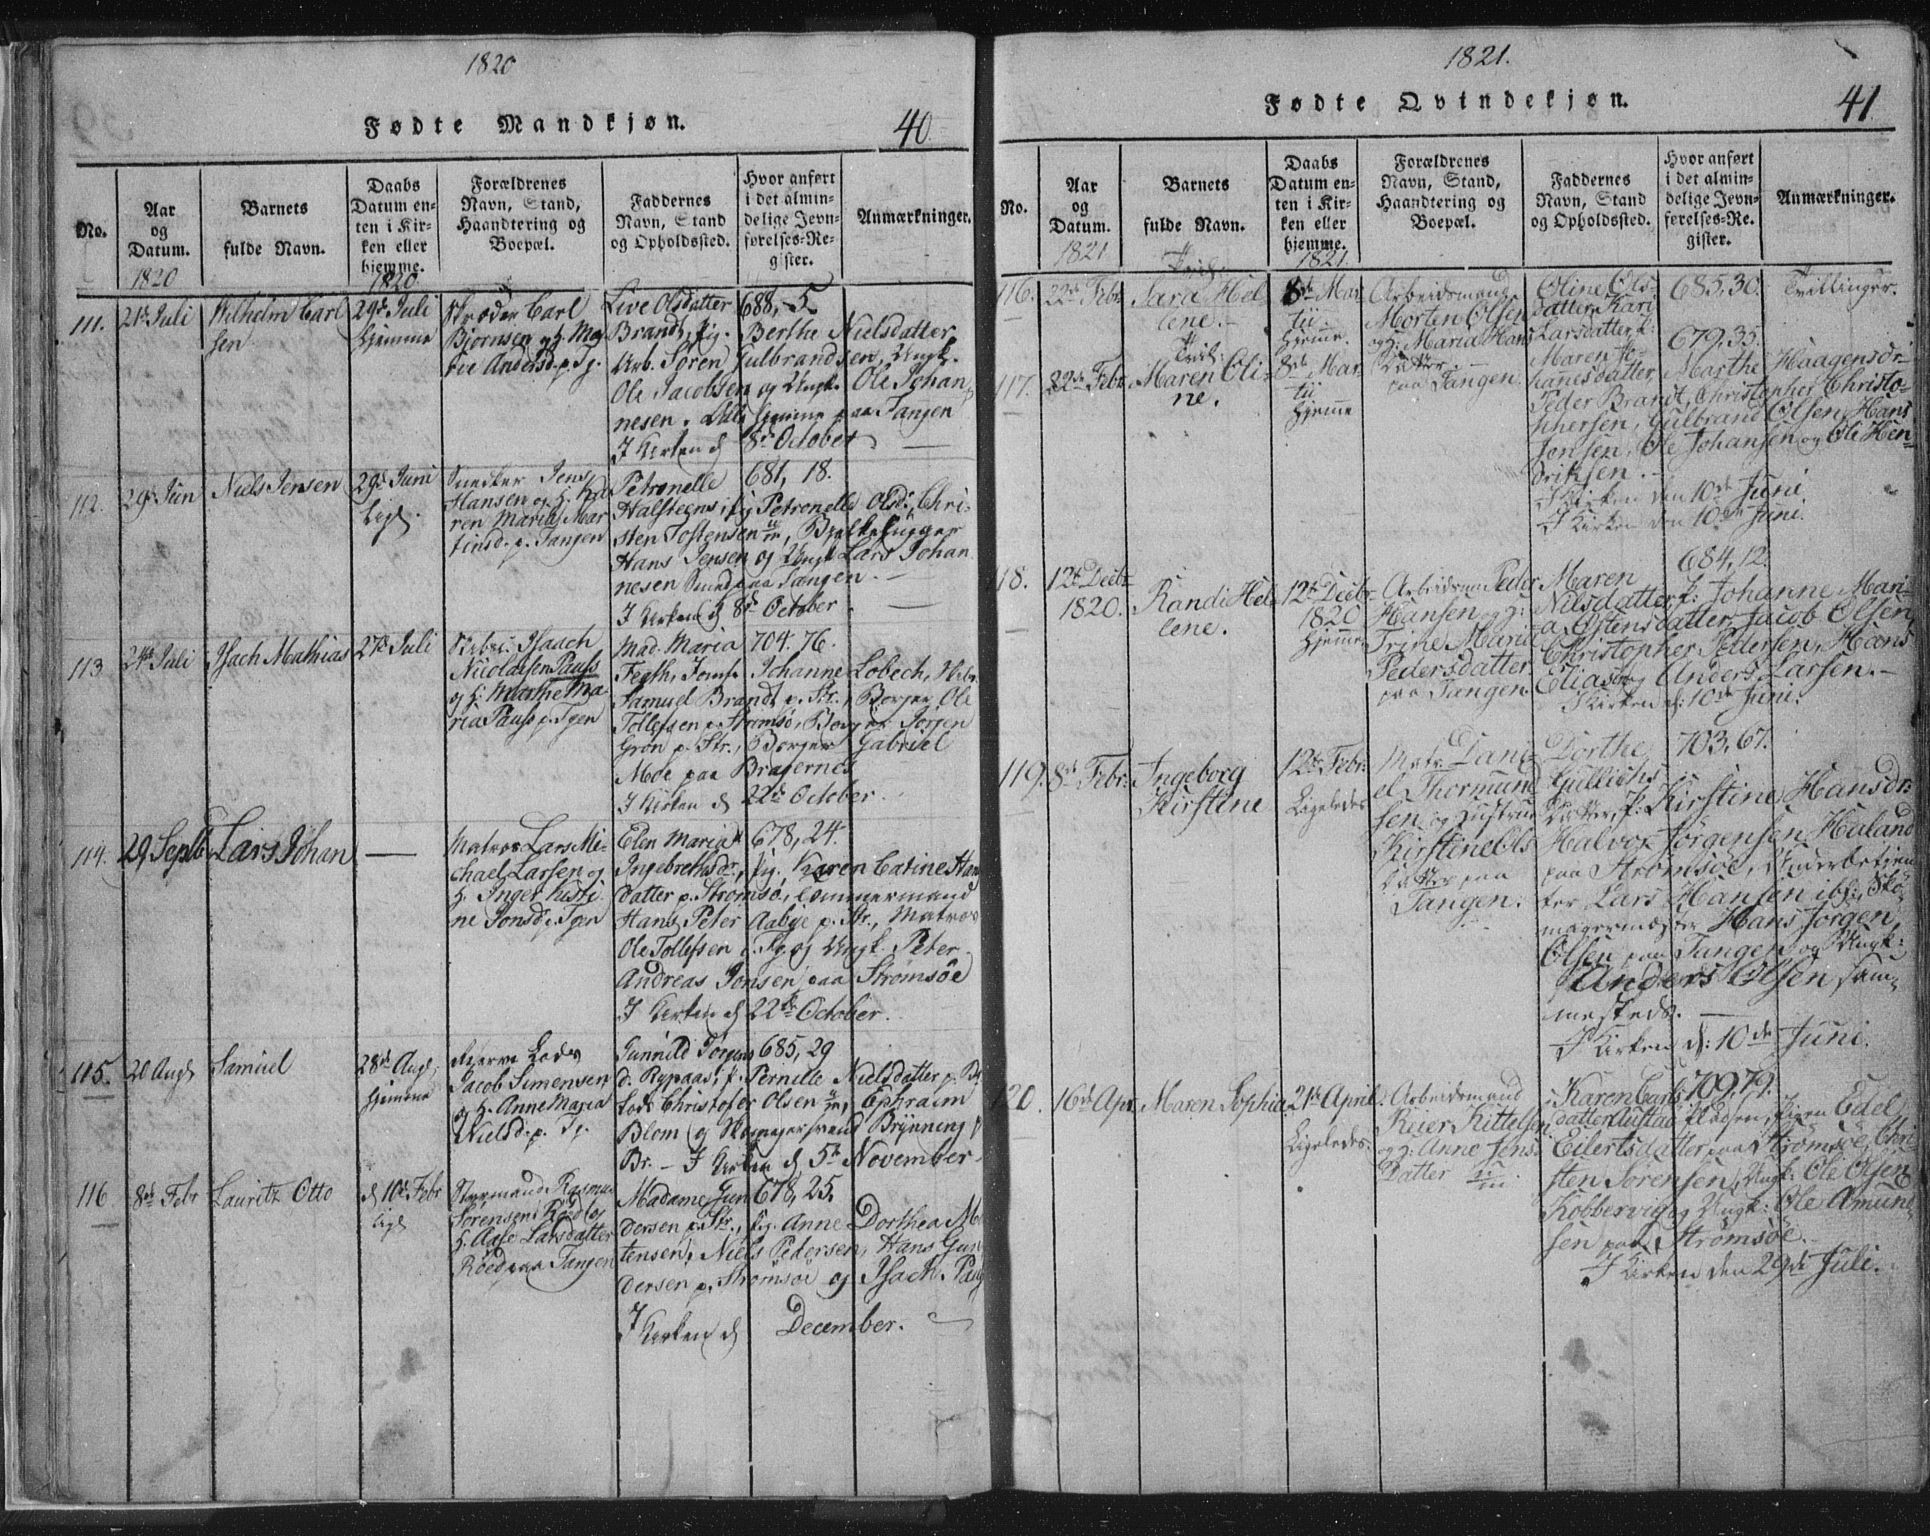 1820
Fødte Mandkjøn.
40.
No.
Aar
og
Datum.
1820
Barnets
fulde Navn.
Daabs
Datum en-
ten i Kir-
ken eller
hjemme.
1820
Forældrenes
Navn, Stand,
Haandtering og
Boepæl.
Faddernes
Navn, Stand
og Opholdssted.
Hvor anført
i det almin-
delige Jevn-
førelses-Re-
gister.
Anmærkninger.
111.
21de Juli
Wilhelm Carl
sen
29de Juli
hjemme
Carl
Bjornsen og h. Ma
rie Andersd. p. Tg.
Live Olsdatter 688, 5.
Brandt, pig. Berthe Nielsdatter,
Arb. Søren Gulbrandsen, Ungk.
Ole Jacobsen og Ungk. Ole Johan
nesen. hjemme paa Tangen
I Kirken d. 8de October
112.
29de Jun
Niels Jensen
29de Juni
Snedker Jens
Hansen og h. Ka
ren Maria Mar
tinsd. p. Tangen
Petronelle 681, 18.
Halsteens, pig Petronelle Olsd. Chri-
sten Tostensen
Hans Jensen og Ungk Lars Johan
nesen Smed paa Tangen.
I Kirken d. 8de October.
113
24de Juli
Isach Mathias
27de Juli
Isaach
Nicolaisen Pauss
og h. Marthe Ma-
ria Pauss p. Tgen
Mad. Maria 704. 76.
Fegth, Jomf. Johanne Lobech, Hr.
Samuel Brandt p. Br., Borger Ole
Tollefsen p. Strømsø, Borger Jørgen
Grøn p. Str., Borger Gabriel
Moe paa Bragernes
I Kirken d. 22de October.
114.
29 Septb
Lars Johan
Matros Lars Mi-
chael Larsen og
h. Inger Kirsti-
ne Jonsd. p. Tgen
Elen Maria 678, 24.
Ingebrethsdr., pig. Karen Catrine Han
datter p. Strømsø, Tømmermand
Hans Peter Aabye p. Str., Matros
Ole Tollefsen i Tg. og Ungk. Peter
Andreas Jonsen paa Strømsøe
I Kirken d. 22de October.
115.
20 Aug
Samuel
28de Aug
hjemme
Lods
Jacob Simensen
og h. Anne Maria
Nielsd. p. Tg.
Gunnild Jorgens 685, 29
d. Rypaas, p. Pernille Nielsdatter p. Br.
Lods Christofer Olsen, Ephraim
Blom og Brynning p
Br. – I Kirken d. 5te November
116
8de Febr
Lauritz Otto
d. 10de Febr
Styrmand Rasmus
Sørensen Røed og
h. Aase Larsdatter
Røed paa Tangen
Madame Gun 678, 25.
dersen p. Str., pig. Anne Dorthea
tensen, Niels Pedersen, Hans Gun
dersen p. Strømsøe og Isach
I Kirken d. December.
1821.
Fødte Qvindekjøn.
41
No.
Aar
og
Datum.
1821
Barnets
fulde Navn.
Daabs
Datum en-
ten i Kir-
ken eller
hjemme.
1821
Forældrenes
Navn, Stand,
Haandtering og
Boepæl.
Faddernes
Navn, Stand
og Opholdssted.
Hvor anført
i det almin-
delige Jevn-
førelses-Re-
gister.
Anmærkninger.
116.
22de Febr
Sara Hel
lene.
8de Mar
tii
hjemme.
Arbeidsmand
Morten Olsen
og h: Maria Hans
Datter
paa Tangen.
Oline Ols- 685, 30.
datter, Kari
Larsdatter, p: 679, 35.
Maren Jo-
hannesdatter, Marthe Haagensdr
Peder Brandt, Christopher Christo-
phersen, Gulbrand Olsen, Hans
Jensen, Ole Johansen og Ole Hen-
driksen.
I Kirken den 10de Juni.
I Kirken den 10de Juni.
Tvillinger.
117.
22de Febr
Maren Oli-
ne.
8de Mar
tii
hjemme
118.
12te Decbr
1820.
Randi Hel
lene.
12te Decbr
1820
hjemme
Arbeidsman Peder
Hansen og h:
Trine Maria
Pedersdatter
paa Tangen.
Maren 684, 12.
Nilsdatter, p: Johanne Mari-
a Ostensdatter, Jacob Olsen,
Christopher Pedersen, Hans
Elias og Anders Larsen.
I Kirken d: 10de Juni.
119.
8de Febr:
Ingeborg
Kirstine
12te Febr:
Ligeledes
Matr. Dani
el Thormund
sen og Hustrue
Kirstine Ols
datter paa
Tangen.
Dorthe 703, 67.
Gullichs
datter, p: Kirstine Hansdr:
Halvor Jørgensen Haland
paa Strømsøe, Underbetjen
ter Lars Hansen ibd: Sko
magermester Hans Jørgen
Olsen paa Tangen og Ungk:
Anders Olsen sam-
mesteds.
I Kirken d: 10de Juni.
120.
16de Apr.
Maren Sophia
21de April
Ligeledes.
Arbeidsmand
Reier Kittelsen
og h: Anne Jens
Datter
Karen Carls 709, 79.
datter Austad, pigen Edel
Eilertsdatter paa Strømsøe, Chri
sten Sørensen, Ungk: Ole Olsen
Kobbervig og Ungk: Ole Amund
sen paa Strømsøe.
I Kirken den 29de Juli.